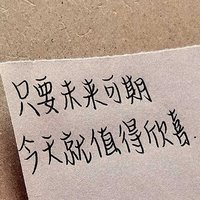 只要未来可期
今天就值得欣喜.